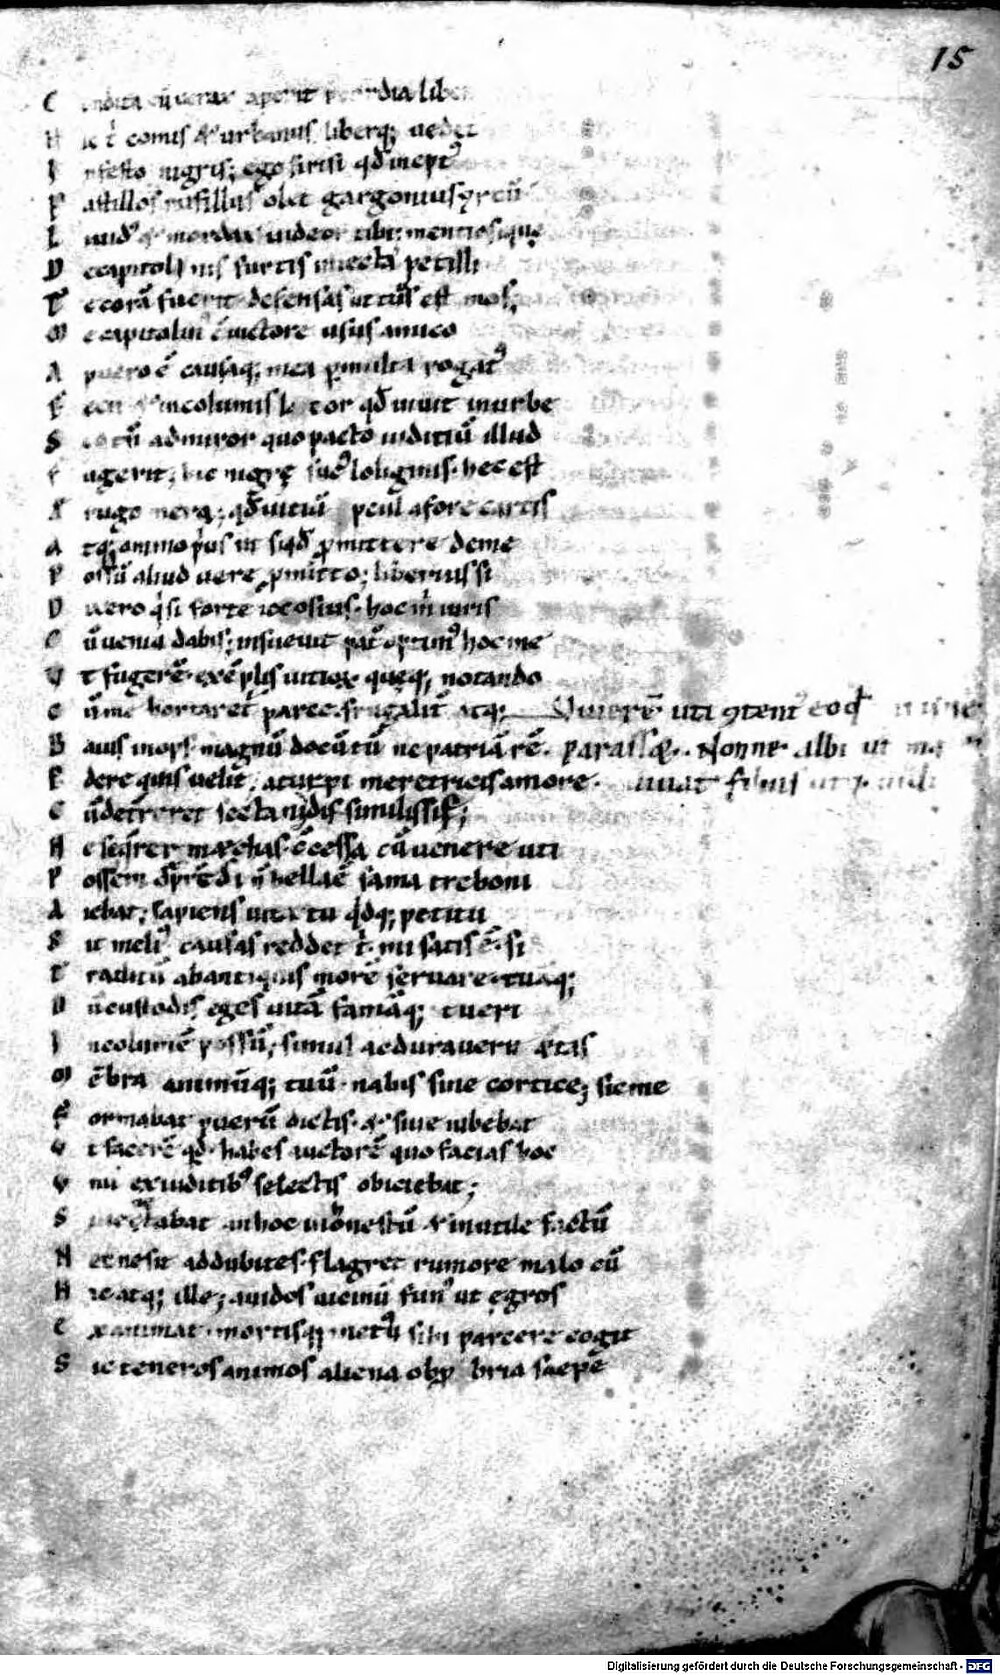 15
C ondita cũ verax aperit p̃cordia liber
H ic t̉ comis & urbanus liberq; uidet̉
I nfesto nigris; ego si risi qđ inept⁹
P astillos rufillus olet gargonius yrcũ
L iuid⁹ & mordax uideor tibi; mentio siquę
D e capitolinis furtis iniecta petilli
T e corã fuerit defensas ut tũs est mos;
M e capitolin⁹ c̃uictore usus amico
A puero ẽ causaq; mea p̱multa rogat⁹
F ecit & incolumis l tor qđ uiuit in urbe
S ed tñ admiror quo pacto iuditiũ illud
F ugerit; hic nigrę suc⁹ loliginis. hec est
A erugo mera; qđ uitiũ pcul afore cartis
A tq; animo prius ut siqđ p̱mittere de me
P ossũ aliud uere p̱mitto; liberius si
D ixero qđ si forte iocosius. hoc m̉ iuris
C ũ uenia dabis; insueuit pat̉ optim⁹ hoc me
V t fugerẽ. exẽplis uitioꝝ quęq; notando
C ũ me hortaret̉ parce. frugalit̉ atq; Viuerẽ uti ꝯtent⁹ eo qđ
B aius inops magnũ docũtũ ne patriã rẽ. parasset. Nonne albi ut ma
P erdere quis uelit; a turpi meretricis amore. uiuat filius ut
C ũ deterreret sectani dissimilis sis;
N e seq̃rer mæchas c̃cessa cũ uenere uti
P ossem dp̃rẽdi ñ bella ẽ fama treboni
A iebat; sapiens uitatu qđq; petitu
S it meli⁹ causas reddet t̉. mi satis ẽ. si
T raditũ ab antiquis morẽ seruare. tuãq;
D ũ custodis eges uitã famãq; tueri
I ncolumẽ possũ; simul ac durauerit ætas
M ẽbra animũq; tuũ. nabis sine cortice; sic me
F ormabat puerũ dictis. & siue iubebat
V t facerẽ qđ. habes auctorẽ quo facias hoc
V nũ ex iuditib⁹ selectis obiciebat;
S iue uetabat an hoc inhonestũ & inutile factũ
N ec ne sit addubites. flagret rumore malo cũ
H ic atq; ille; auidos uicinũ fun⁹ ut egros
E xanimat. mortisq; metu sibi parcere cogit
S ic teneros animos aliena obp̱bria saepe
Digitalisierung gefördert durch die Deutsche Forschungsgemeinschaft - DFG